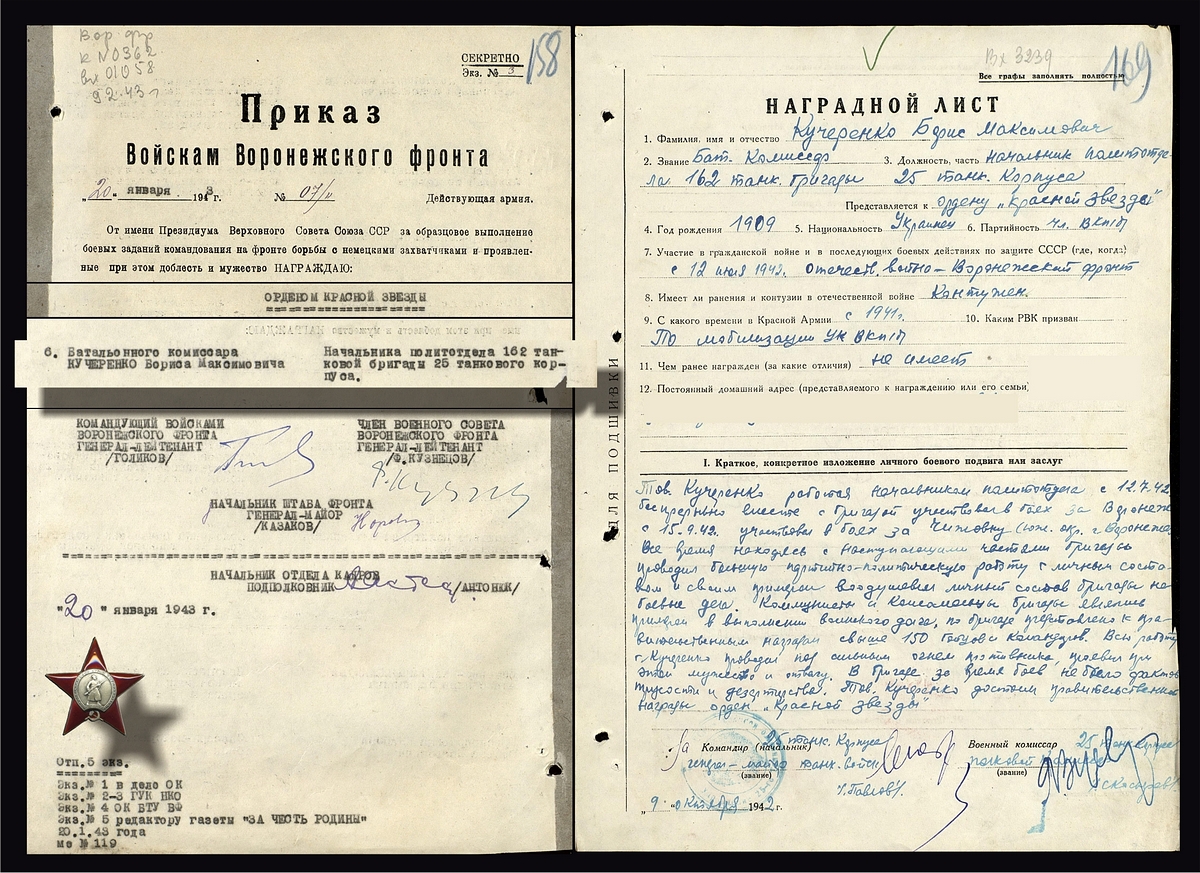 Вор фр
к N0362
вх 01058
9 2.43 г
158
СЕКРЕТНО
Экз. № 3
Приказ
Войскам Воронежского фронта
„20" января 1943 г.
№ 07/н
Действующая армия.
От имени Президиума Верховного Совета Союза ССР за образцовое выполнение
боевых заданий командования на фронте борьбы с немецкими захватчиками и проявлен-
ные при этом доблесть и мужество НАГРАЖДАЮ:
ОРДЕНОМ КРАСНОЙ ЗВЕЗДЫ
6. Батальонного комиссара
КУЧЕРЕНКО Бориса Максимовича
Начальника политотдела 162 тан-
ковой бригады 25 танкового кор-
пуса.
КОМАНДУЮЩИЙ ВОЙСКАМИ
ВОРОНЕЖСКОГО ФРОНТА
ГЕНЕРАЛ-ЛЕЙТЕНАНТ
/ГОЛИКОВ/
ЧЛЕН ВОЕННОГО СОВЕТА
ВОРОНЕЖСКОГО ФРОНТА
ГЕНЕРАЛ-ЛЕЙТЕНАНТ
/Ф.КУЗНЕЦОВ/
НАЧАЛЬНИК ШТАБА ФРОНТА
ГЕНЕРАЛ-МАЙОР
/КАЗАКОВ/
НАЧАЛЬНИК ОТДЕЛА КАДРОВ
ПОДПОЛКОВНИК /АНТОНЮК/
"20" января 1943 г.
Отп.5 экз.
Экз.№ 1 в дело ОК
Экз.№ 2-3 ГУК НКО
Экз.№ 4 ОК БТУ ВФ
Экз.№ 5 редактору газеты "ЗА ЧЕСТЬ РОДИНЫ"
20.1.43 года
мс № 119
Вх 3239
169
Все графы заполнять полностью
НАГРАДНОЙ ЛИСТ
1. Фамилия, имя и отчество Кучеренко Борис Максимович
2. Звание Бат. Комиссар 3. Должность, часть начальник политотде-
ла 162 танк. бригады 25 танк. Корпуса
Представляется к ордену „Красной звезды"
4. Год рождения 1909 5. Национальность Украинец 6. Партийность чл. ВКП/б
7. Участие в гражданской войне и в последующих боевых действиях по защите СССР (где, когда)
с 12 июля 1942. Отечеств. война – Воронежский фронт
8. Имеет ли ранения и контузии в отечественной войне Контужен.
9. С какого времени в Красной Армии с 1941г. 10. Каким РВК призван
По мобилизации ЦК ВКП/б
11. Чем ранее награжден (за какие отличия) не имеет
12. Постоянный домашний адрес (представляемого к награждению или его семьи)
ДЛЯ ПОДШИВКИ
I. Краткое, конкретное изложение личного боевого подвига или заслуг
Тов. Кучеренко работая начальником политотдела с 12.7.42
беспрерывно вместе с бригадой участвовал в боях за Воронеж
с 15.9.42. участвовал в боях за Чижовку (юж. окр. г. Воронежа)
Все время находясь с наступающими частями бригады
проводил большую партийно-политическую работу с личным соста-
вом и своим примером воодушевлял личный состав бригады на
боевые дела. Коммунисты и Комсомольцы бригады являлись
примером в выполнении воинского долга, по бригаде представлено к пра-
вительственным наградам свыше 150 бойцов и командиров. Всю работу
т. Кучеренко проводил под сильным огнем противника, проявил при
этом мужество и отвагу. В бригаде за время боев не было фактов
трусости и дезертирства. Тов. Кучеренко достоин правительственной
награды орден „Красной звезды"
Командир (начальник) 25 танк. Корпуса
генерал-майор танк. войск
(звание)
/Павлов/.
„9" октября 1942 г.
Военный комиссар 25 танк. корпуса
полковой
(звание)